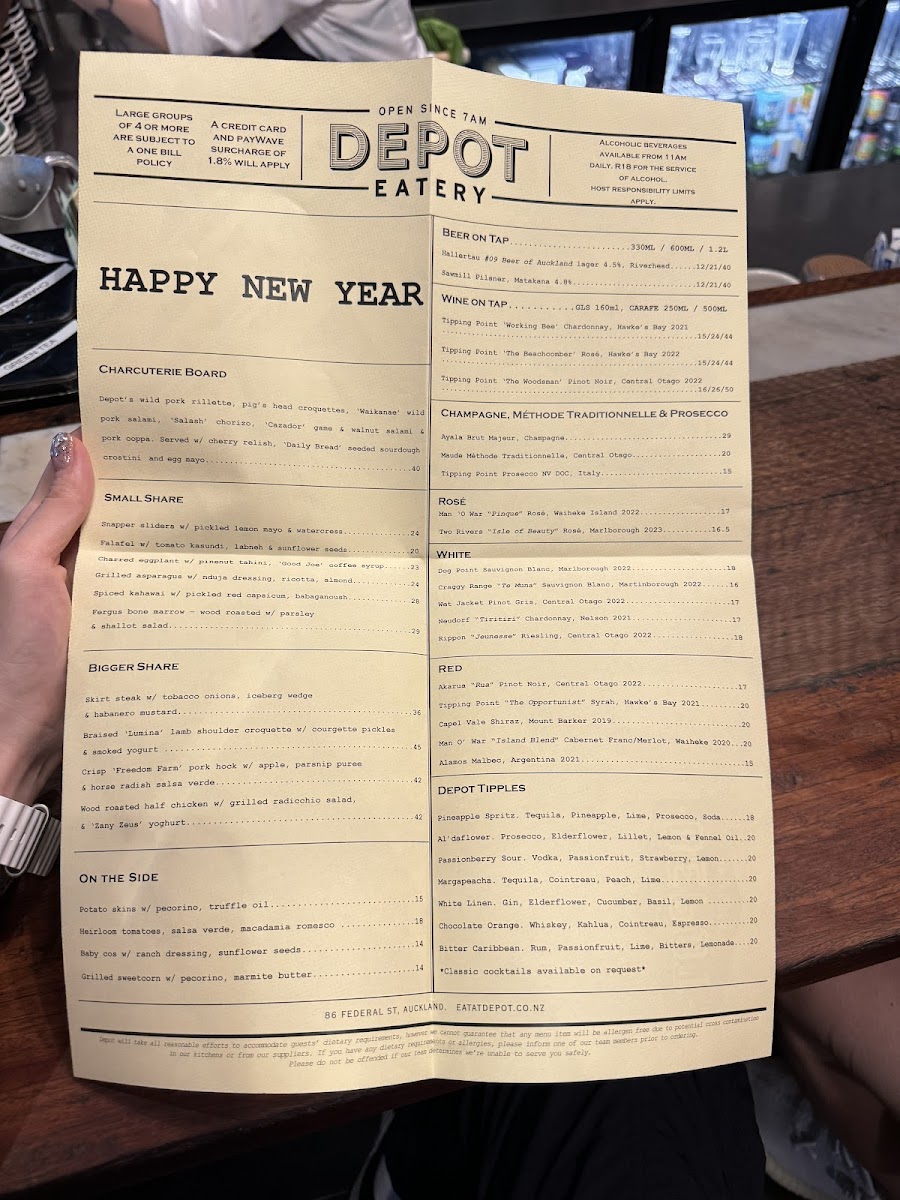 LARGE GROUPS
OF 4 OR MORE
ARE SUBJECT TO
A ONE BILL
POLICY
A CREDIT CARD
AND PAYWAVE
SURCHARGE OF
1.8% WILL APPLY
OPEN SINCE 7AM
DEPOT
EATERY
ALCOHOLIC BEVERAGES
AVAILABLE FROM 11AM
DAILY. R18 FOR THE SERVICE
OF ALCOHOL.
HOST RESPONSIBILITY LIMITS
APPLY.
HAPPY NEW YEAR
CHARCUTERIE BOARD
Depot's wild pork rillette, pig's head croquettes, 'Waikanae' wild
pork salami, 'Salash' chorizo, 'Cazador' game & walnut salami &
pork coppa. Served w/ cherry relish, 'Daily Bread' seeded sourdough
crostini and egg mayo.....40
SMALL SHARE
Snapper sliders w/ pickled lemon mayo & watercress.....24
Falafel w/ tomato kasundi, labneh & sunflower seeds.....20
Charred eggplant w/ pinenut tahini, 'Good Joe' coffee syrup.....23
Grilled asparagus w/ nduja dressing, ricotta, almond.....24
Spiced kahawai w/ pickled red capsicum, babaganoush.....28
Fergus bone marrow – wood roasted w/ parsley
& shallot salad.....29
BIGGER SHARE
Skirt steak w/ tobacco onions, iceberg wedge
& habanero mustard.....36
Braised 'Lumina' lamb shoulder croquette w/ courgette pickles
& smoked yogurt .....45
Crisp 'Freedom Farm' pork hock w/ apple, parsnip puree
& horse radish salsa verde.....42
Wood roasted half chicken w/ grilled radicchio salad,
& 'Zany Zeus' yoghurt.....42
ON THE SIDE
Potato skins w/ pecorino, truffle oil.....15
Heirloom tomatoes, salsa verde, macadamia romesco .....18
Baby cos w/ ranch dressing, sunflower seeds.....14
Grilled sweetcorn w/ pecorino, marmite butter.....14
BEER ON TAP.....330ML / 600ML / 1.2L
Hallertau #09 Beer of Auckland lager 4.5%, Riverhead.....12/21/40
Sawmill Pilsner, Matakana 4.8%.....12/21/40
WINE ON TAP.....GLS 160ml, CARAFE 250ML / 500ML
Tipping Point 'Working Bee' Chardonnay, Hawke's Bay 2021
.....15/24/44
Tipping Point 'The Beachcomber' Rosé, Hawke's Bay 2022
.....15/24/44
Tipping Point 'The Woodsman' Pinot Noir, Central Otago 2022
.....16/26/50
CHAMPAGNE, MÉTHODE TRADITIONNELLE & PROSECCO
Ayala Brut Majeur, Champagne.....29
Maude Méthode Traditionnelle, Central Otago.....20
Tipping Point Prosecco NV DOC, Italy.....15
ROSÉ
Man 'O War "Pinque" Rosé, Waiheke Island 2022.....17
Two Rivers "Isle of Beauty" Rosé, Marlborough 2023.....16.5
WHITE
Dog Point Sauvignon Blanc, Marlborough 2022.....18
Craggy Range "Te Muna" Sauvignon Blanc, Martinborough 2022.....16
Wet Jacket Pinot Gris, Central Otago 2022.....17
Neudorf "Tiritiri" Chardonnay, Nelson 2021.....17
Rippon "Jeunesse" Riesling, Central Otago 2022.....18
RED
Akarua "Rua" Pinot Noir, Central Otago 2022.....17
Tipping Point "The Opportunist" Syrah, Hawke's Bay 2021.....20
Capel Vale Shiraz, Mount Barker 2019.....20
Man O' War "Island Blend" Cabernet Franc/Merlot, Waiheke 2020...20
Alamos Malbec, Argentina 2021.....15
DEPOT TIPPLES
Pineapple Spritz. Tequila, Pineapple, Lime, Prosecco, Soda.....18
Al'daflower. Prosecco, Elderflower, Lillet, Lemon & Fennel Oil..20
Passionberry Sour. Vodka, Passionfruit, Strawberry, Lemon.....20
Margapeacha. Tequila, Cointreau, Peach, Lime.....20
White Linen. Gin, Elderflower, Cucumber, Basil, Lemon .....20
Chocolate Orange. Whiskey, Kahlua, Cointreau, Espresso.....20
Bitter Caribbean. Rum, Passionfruit, Lime, Bitters, Lemonade...20
*Classic cocktails available on request*
86 FEDERAL ST, AUCKLAND. EATATDEPOT.CO.NZ
Depot will take all reasonable efforts to accommodate guests' dietary requirements, however we cannot guarantee that any menu item will be allergen free due to potential cross contamination
in our kitchens or from our suppliers. If you have any dietary requirements or allergies, please inform one of our team members prior to ordering.
Please do not be offended if our team determines we're unable to serve you safely.
GREEN TEA